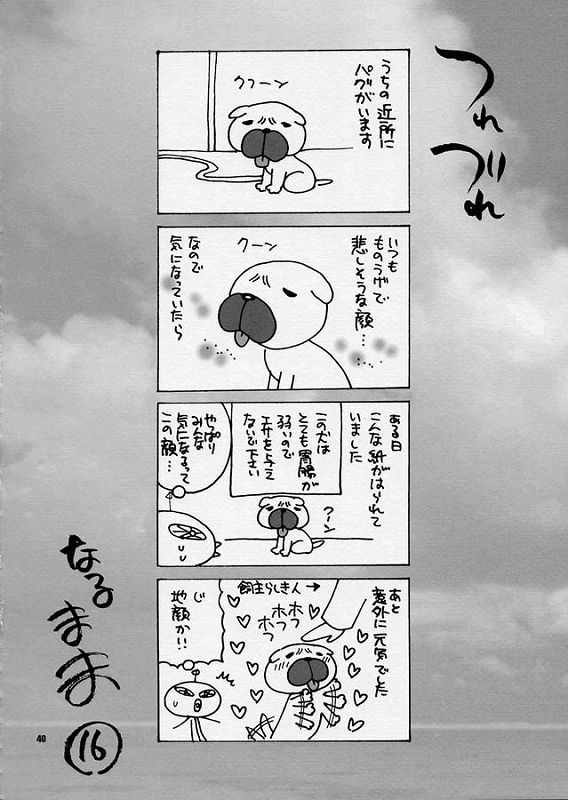 つれ
づれ
なる
まま
16
うちの近所に
パグがいます
クフーン
いつも
ものうげで
悲しそうな顔…
クーン
なので
気になっていたら
ある日
こんな紙がはられて
いました
この犬は
とても胃腸が
弱いので
エサを与え
ないで下さい
クーン
やっぱり
みんな
気になるって
この顔…
あと
意外に元気でした
飼主らしき人→
ホフ
ホフ
ホフ
じ
地顔か!!
40